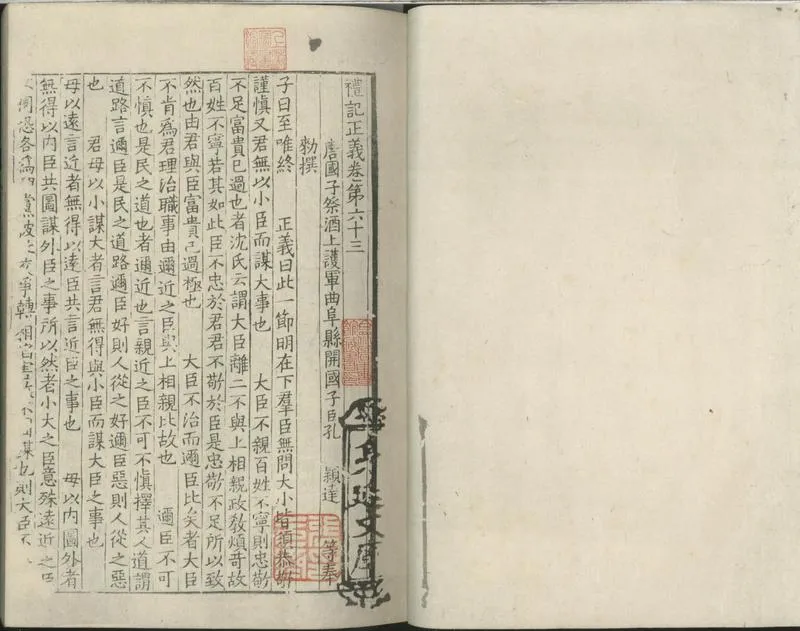 禮記正義卷第六十三
唐國子祭酒上護軍曲阜縣開國子臣孔 穎達 等奉
勑撰
子曰至唯終 正義曰此一節明在下羣臣無問大小皆須恭敬
謹慎又君無以小臣而謀大事也 大臣不親百姓不寧則忠敬
不足富貴已過也者沈氏云謂大臣離二不與上相親政敎煩苛故
百姓不寧若其如此臣不忠於君君不敬於臣是忠敬不足所以致
然也由君與臣富貴已過極也 大臣不治而邇臣比矣者大臣
不肯爲君理治職事由邇近之臣與上相親比故也 邇臣不可
不慎也是民之道也者邇近也言親近之臣不可不慎擇其人道謂
道路言邇臣是民之道路邇臣好則人從之好邇臣惡則人從之惡
也 君毋以小謀大者言君無得與小臣而謀大臣之事也
毋以遠言近者無得以遠臣共言近臣之事也 毋以內圖外者
無得以內臣共圖謀外臣之事所以然者小大之臣意殊遠近之臣
不同恐各爲 黨彼 爭轉相 謀也則大臣不